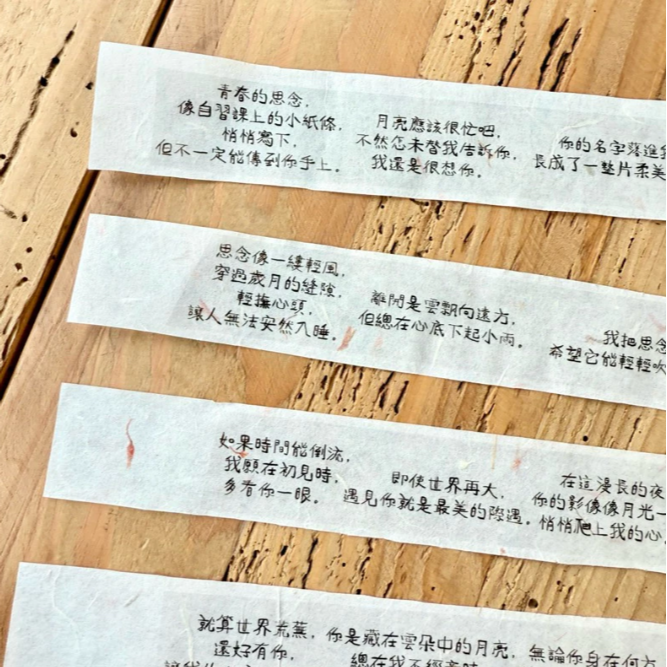 青春的思念，
像自習課上的小紙條，
悄悄寫下，
但不一定能傳到你手上。
月亮應該很忙吧，
不然怎未替我告訴你，
我還是很想你。
你的名字落進我
長成了一整片柔美
思念像一縷輕風，
穿過歲月的縫隙，
輕撫心頭，
讓人無法安然入睡。
離開是雲飄向遠方，
但總在心底下起小雨。
我把思念
希望它能輕輕吹
如果時間能倒流，
我願在初見時，
多看你一眼。
即使世界再大，
遇見你就是最美的際遇。
在這漫長的夜
你的影像像月光一
悄悄爬上我的心
就算世界荒蕪，
還好有你，
你是藏在雲朵中的月亮，
總在我不經意時
無論你身在何方